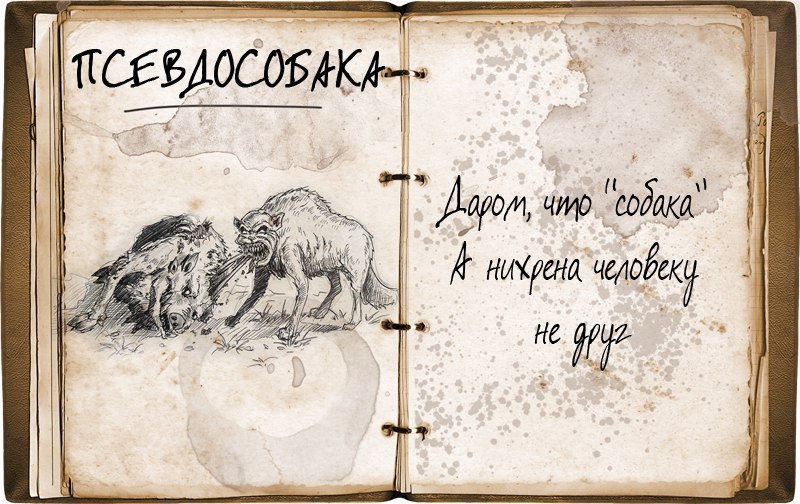 ПСЕВДОСОБАКА
Даром, что "собака"
А нихрена человеку
не друг